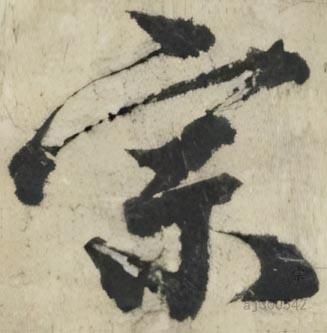 宗
aj300542